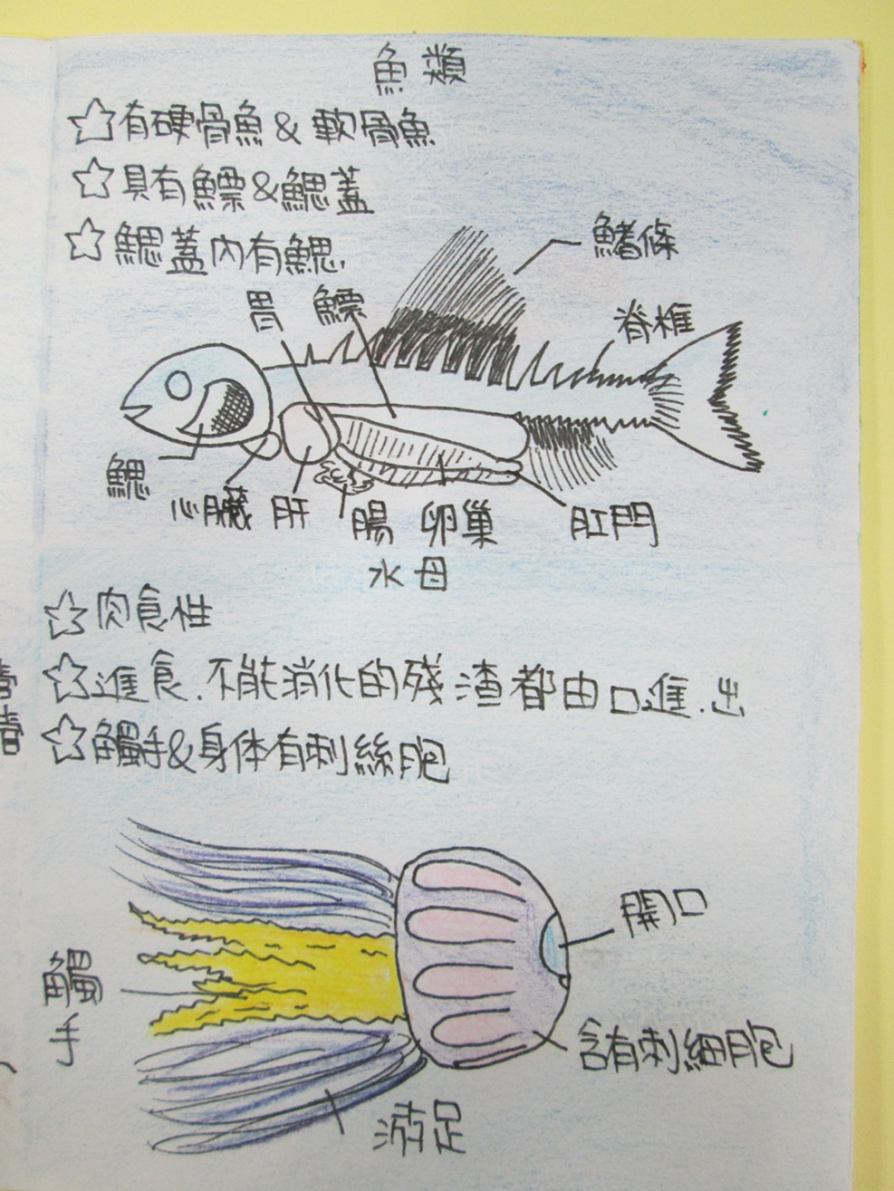 魚類
☆有硬骨魚&軟骨魚
☆具有鰾&鰓蓋
☆鰓蓋內有鰓
鰭條
胃 鰾
脊椎
鰓
心臟 肝 腸 卵巢 肛門
水母
☆肉食性
☆進食.不能消化的殘渣都由口進.出
☆觸手&身体有刺絲胞
開口
觸手
含有刺細胞
游足